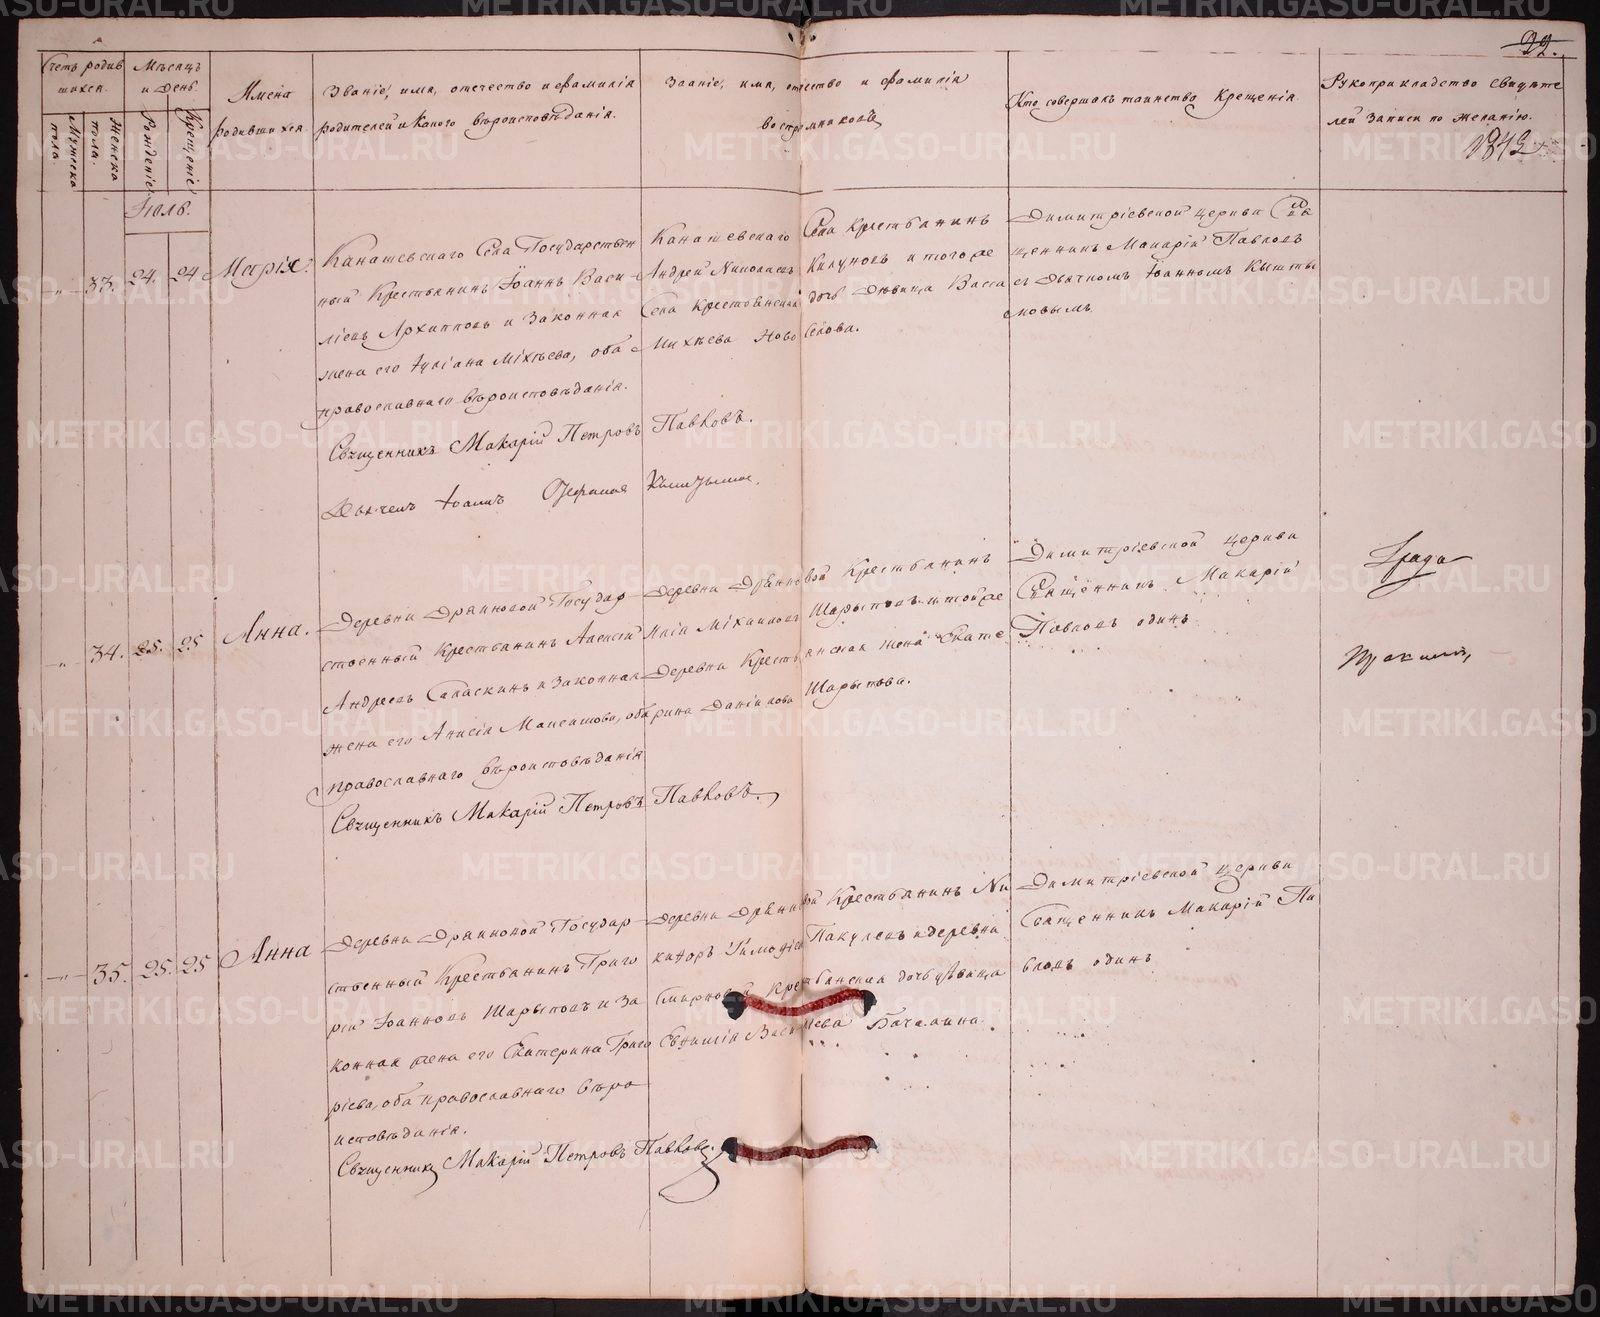 22.
Счетъ родив
шихся.
Мѣсяцъ
и день.
Мужеска
пола.
Женска
пола.
Рожденіе
Крещеніе
Имена
родившихся.
Званіе, имя, отечество и фамилія
родителей и какого вѣроисповѣданія.
Званіе, имя, отчество и фамилія
воспріемниковъ
Кто совершалъ таинство Крещенія
Рукоприкладство свидѣте
лей записи по желанію.
1843
Іюль.
33. 24. 24
Марія.
Канашевскаго Села Государствен
ный Крестьянинъ Іоаннъ Васи
ліевъ Архиповъ и Законная
жена его Іуліана Міхѣева, оба
православнаго вѣроисповѣданія.
Канашевскаго Села Крестьянинъ
Андрей Николаевъ и того же
Села Крестьянская дочь дѣвица Васса
Михѣева Новоселова.
Димитріевской церкви Свя
щенникъ Макарій Павловъ
съ дьячкомъ Іоанномъ Кышты
мовымъ
Священникъ Макарій Петровъ Павловъ.
Дьячекъ Іоаннъ
34. 25. 25
Анна.
Деревни Дрянновой Государ
ственный Крестьянинъ Алексій
Андреевъ Саласкинъ и законная
жена его Анисія Максимова, оба
православнаго вѣроисповѣданія
Деревни Дрянновой Крестьянинъ
Илія Міхаиловъ Шарыповъ и той же
деревни Крестьянская жена Екате
рина Даніилова Шарыпова.
Димитріевской церкви
Священникъ Макарій
Павловъ одинъ
Священникъ Макарій Петровъ Павловъ.
35. 25. 25
Анна
Деревни Дрянновой Государ
ственный Крестьянинъ Григо
рій Іоанновъ Шарыповъ и За
конная жена его Екатерина Григо
ріева, оба православнаго вѣро
исповѣданія.
Деревни Дрянновой Крестьянинъ Ни
каноръ Тимофіевъ Пакулевъ и деревни
Смирновой Крестьянская дочь дѣвица
Евфимія Василіева Бачалина.
Димитріевской церкви
Священникъ Макарій Па
вловъ одинъ
Священникъ Макарій Петровъ Павловъ.
METRIKI.GASO-URAL.RU